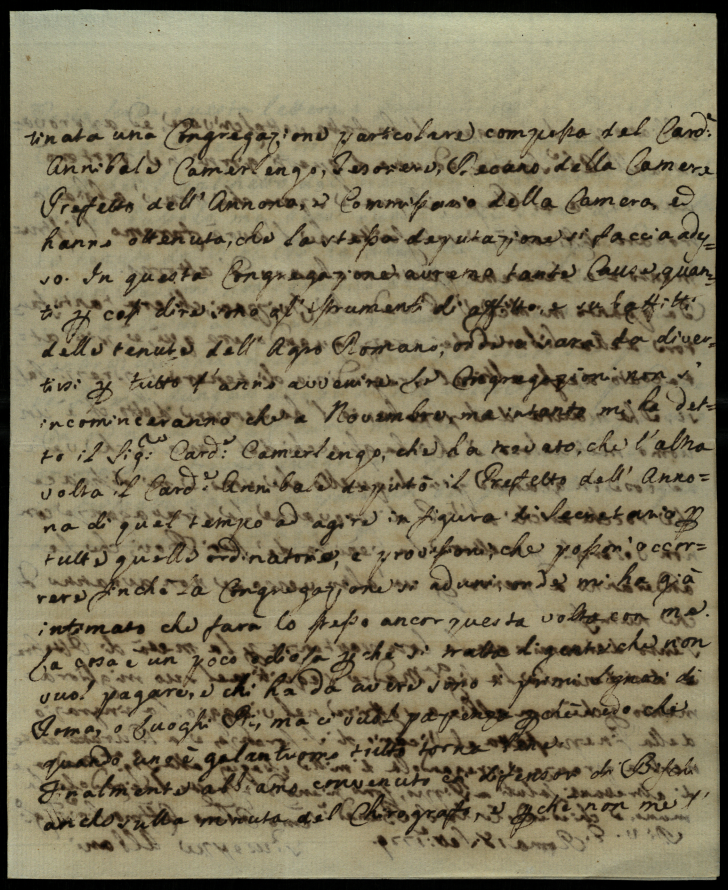 tinata una Congregazione particolare composta del Card.
Annibale Camerlengo, Tesoriere, Decano della Camera
Prefetto dell'Annona, e Commissario della Camera, ed
hanno ottenuto, che la stessa deputazione si faccia ades=
so. In questa Congregazione avremo tante Cause quan=
ti così dire sono gl'istrumenti di affitto, e subaffitti
delle tenute dell'Agro Romano, onde ci sarà da diver=
tirsi tutto l'anno avvenire. Le Congregazioni non s'
incominceranno che a Novembre, ma intanto mi ha det=
to il Sig. Card. Camerlengo, che ha trovato, che l'altra
volta il Card. Annibale deputò il Prefetto dell'Anno=
na di quel tempo ad agire in figura di Secretario
tutte quelle ordinatorie, e provisioni, che posson occor=
rere finchè la Congregazione si aduni, onde mi ha già
intimato che farà lo stesso ancor questa volta con me.
La cosa è un poco odiosa che si tratta di gente che non
vuol pagare, e chi ha da avere sono i primi Signori di
Roma, o Luoghi Pii, ma ci vuol pazienza vedo che
quando uno è galantuomo tutto torna
Finalmente abbiamo convenuto col difensor di
anche sulla minuta del Chirografo, e che non me l'